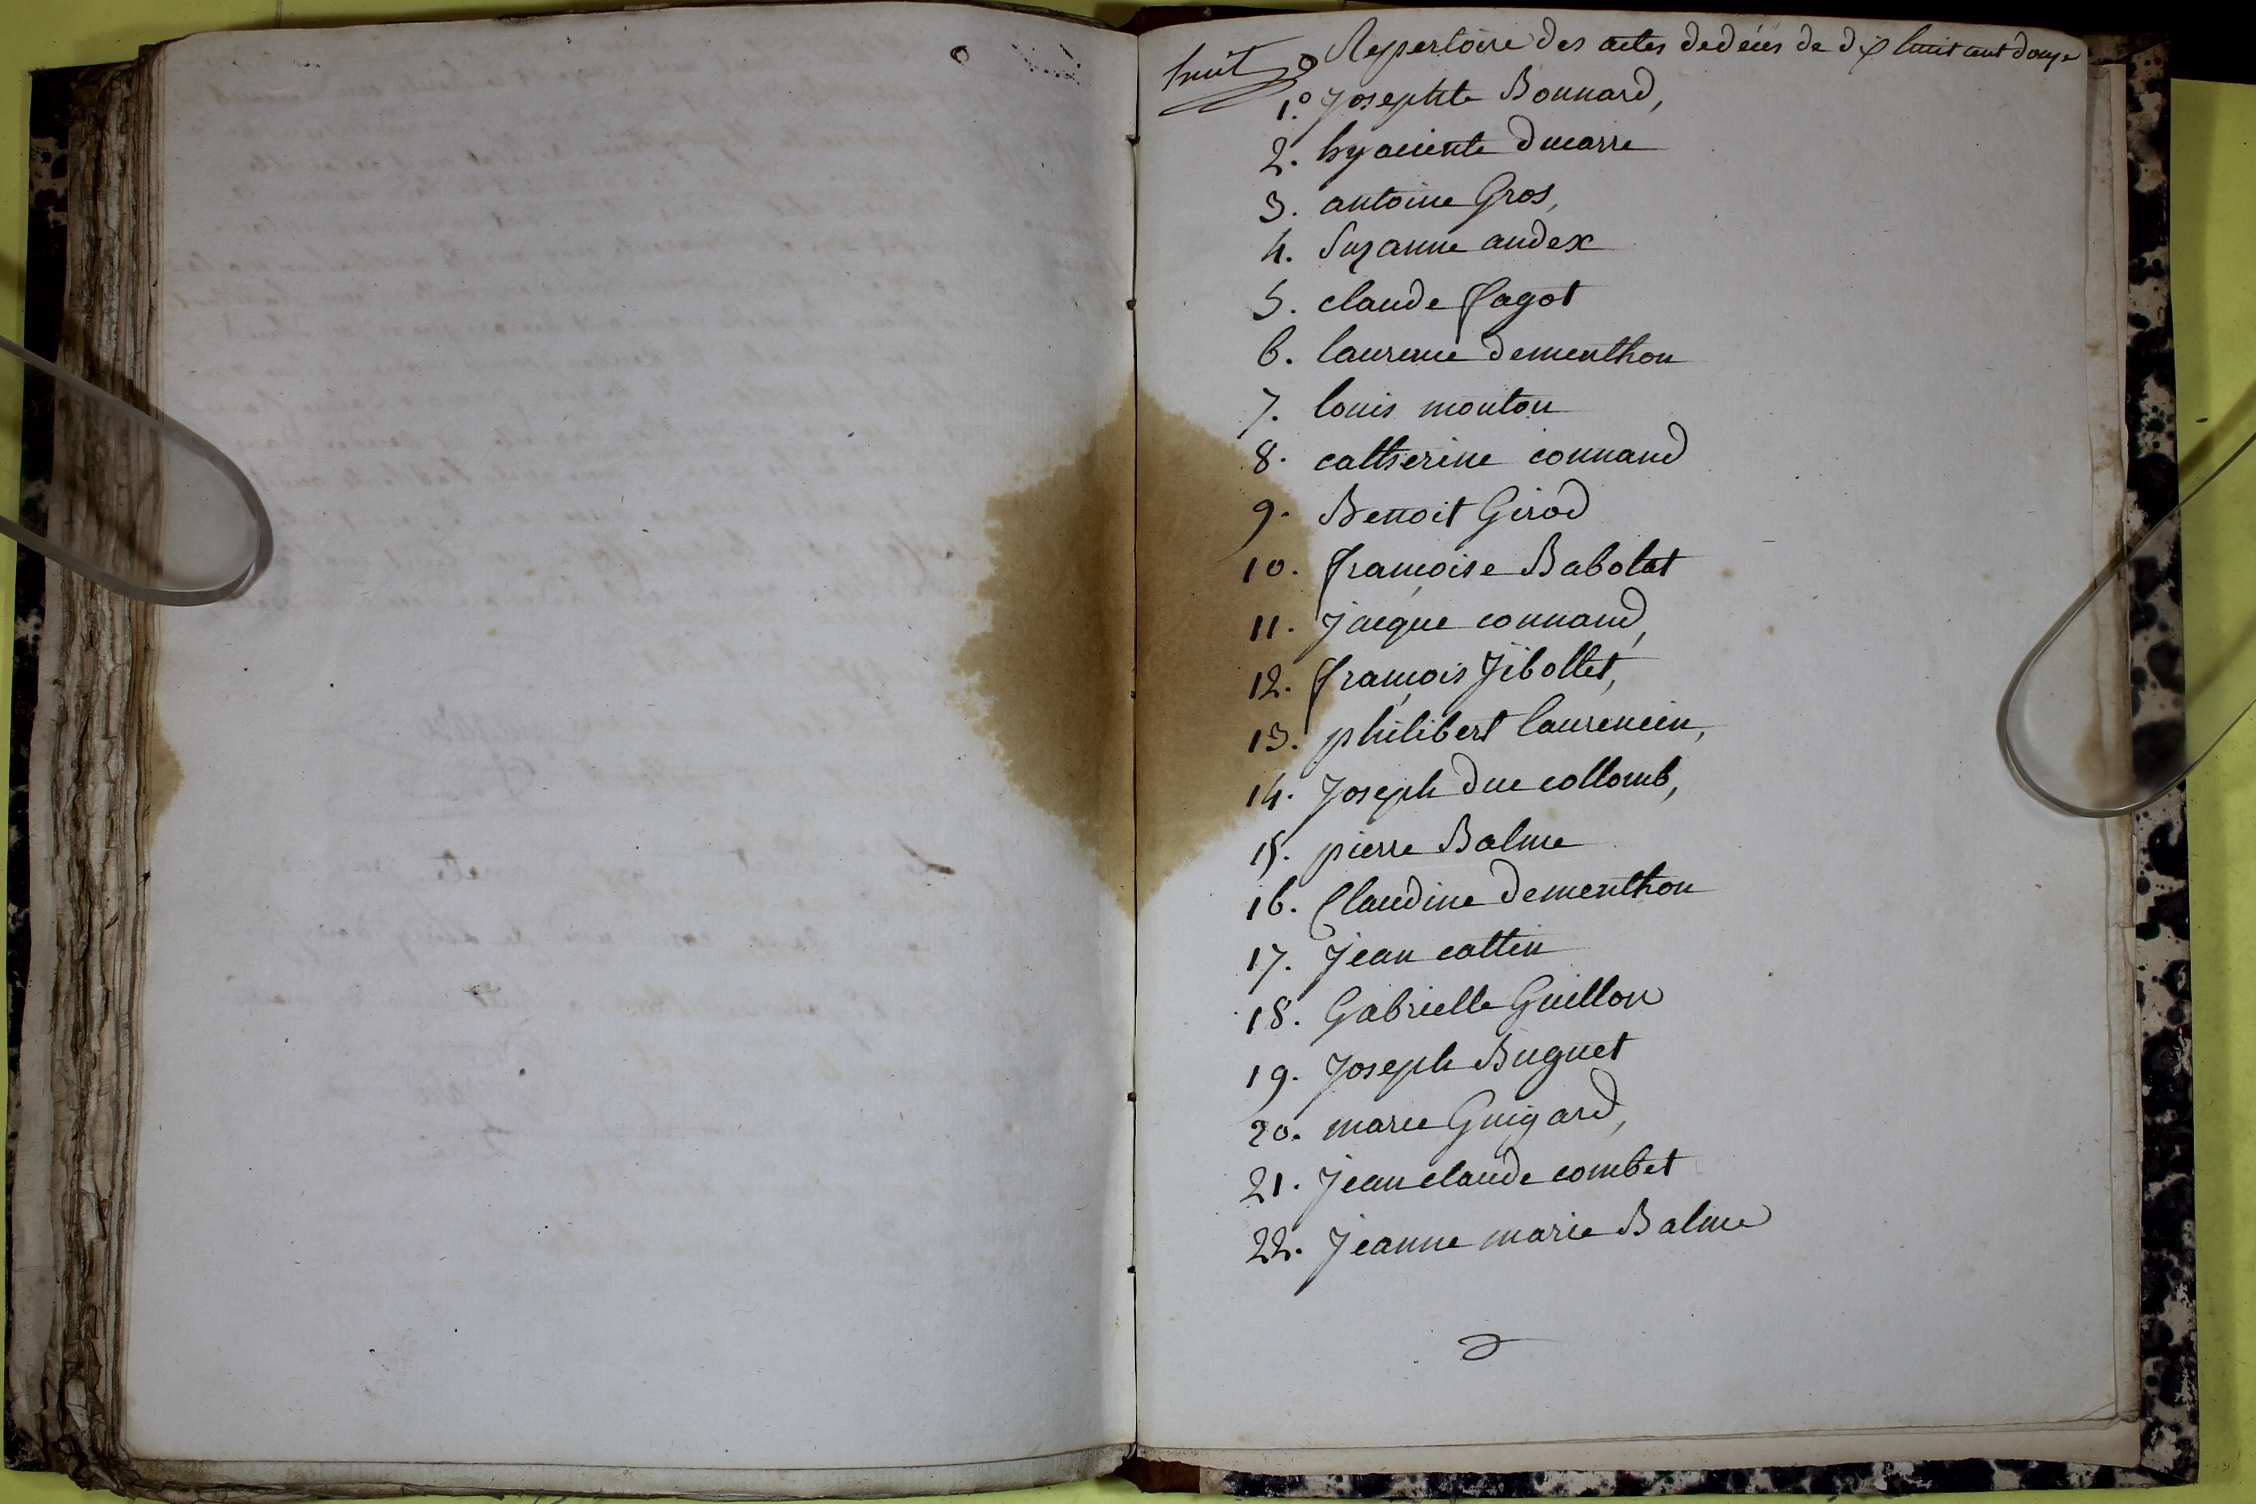 huit
Repertoire des actes dedeces de dix huit cent douze
1.º Josephte Bonnard,
2. hyacinte ducarre
3. antoine Gros,
4. Suzanne andex
5. claude fagot
6. laurence dementhon
7. louis mouton
8. catherine connand
9. Benoit Girod
10. françoise Babolat
11. Jacque connand,
12. françois Jibollet,
13. philibert laurencin,
14. Joseph duc collomb,
15. pierre Balme
16. Claudine dementhon
17. Jean cattin
18. Gabrielle Guillon
19. Joseph Buguet
20. marie Guigard,
21. Jean claude combet
22. Jeanne marie Balme